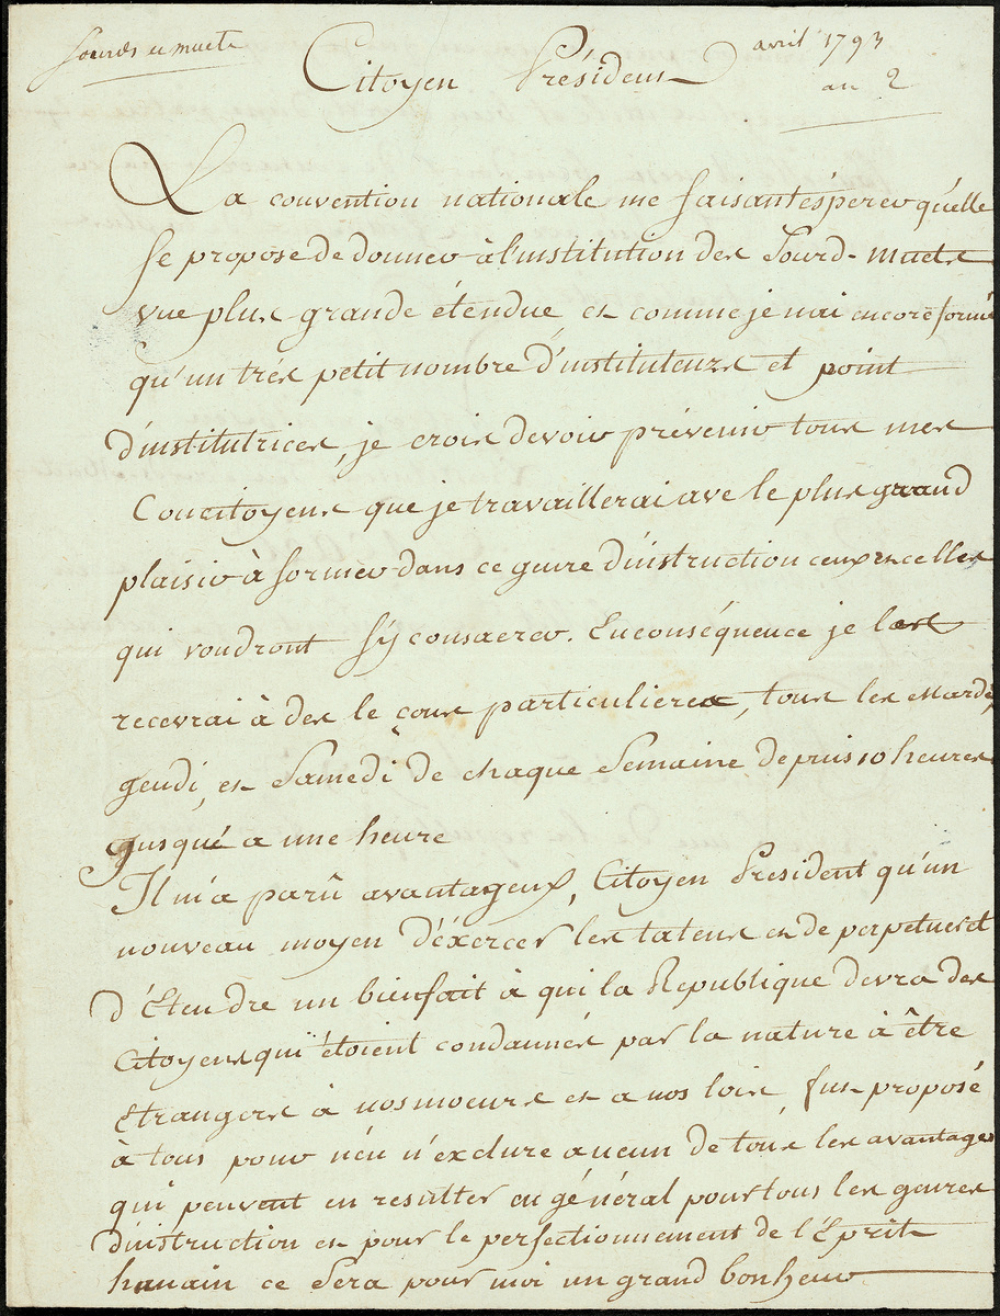 Sourds et muets
avril 1793
an 2
Citoyen Président
La convention nationale me faisant éspérer qu'elle
se propose de donner à l'institution des Sourd-muets
vue plus grande étendue et comme je nai encore formé
qu'un trés petit nombre d'instituteurs et point
d'institutrices, je crois devoir prévenir tous mes
Concitoyens que je travaillerai ave le plus grand
plaisir à former dans ce genre d'instruction ceux et celles
qui voudront s'y consacrer. En conséquence je les
recevrai à des le çons particulieres, tous les mardi,
jeudi, et Samedi de chaque Semaine depuis 10 heures
jusqué a une heure
Il m'a parû avantageux, Citoyen President qu'un
nouveau moyen d'éxercer les talens et de perpetuer et
d'Etendre un bienfait à qui la Republique devra des
Citoyens qui étoient condamnés par la nature à être
Etrangers à nos moeurs et a nos loix, fut proposé
à tous pour n'en n'exclure aucun de tous les avantages
qui peuvent en resulter en général pour tous les genres
d'instruction et pour le perfectionnement de l'Eprit
humain ce Sera pour moi un grand bonheur